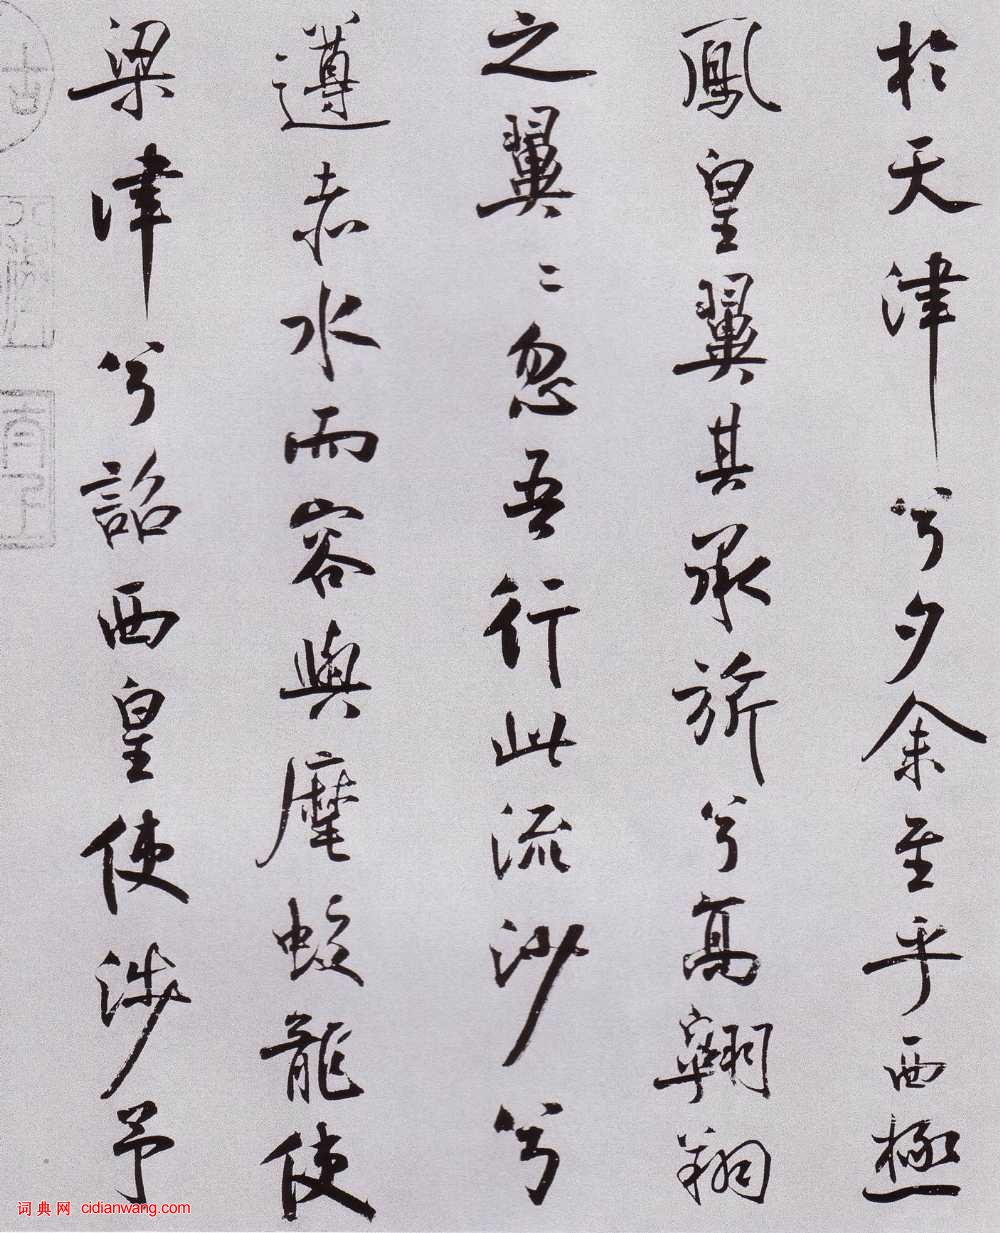 於天津兮夕余至乎西極
鳳皇翼其承旂兮高翱翔
之翼〻忽吾行此流沙兮
遵赤水而容與麾蛟龍使
梁津兮詔西皇使涉予
词典网 cidianwang.com